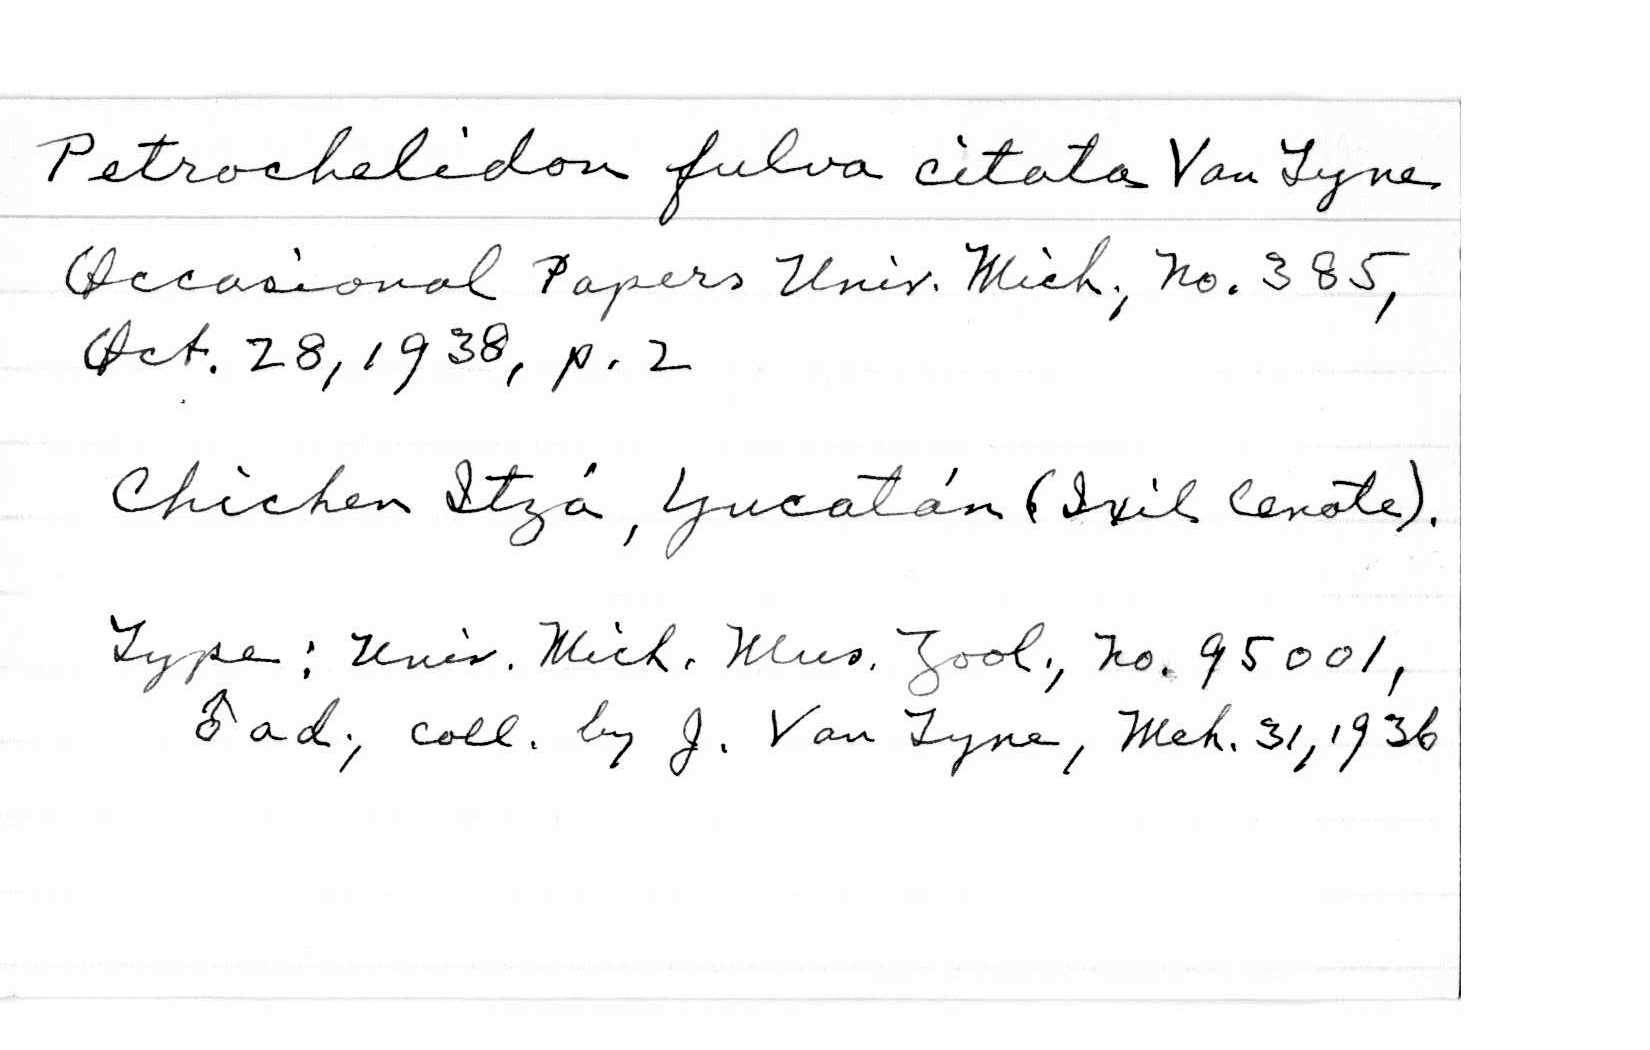 Petrochelidon fulva citata Van Tyne
Occasional Papers Univ. Mich., No. 385,
Oct. 28, 1938, p. 2
Chichen Itzá, Yucatán (Ixil Cenote).
Type: Univ. Mich. Mus. Zool., No. 95001,
♂ ad., coll. by J. Van Tyne, Mch. 31, 1936